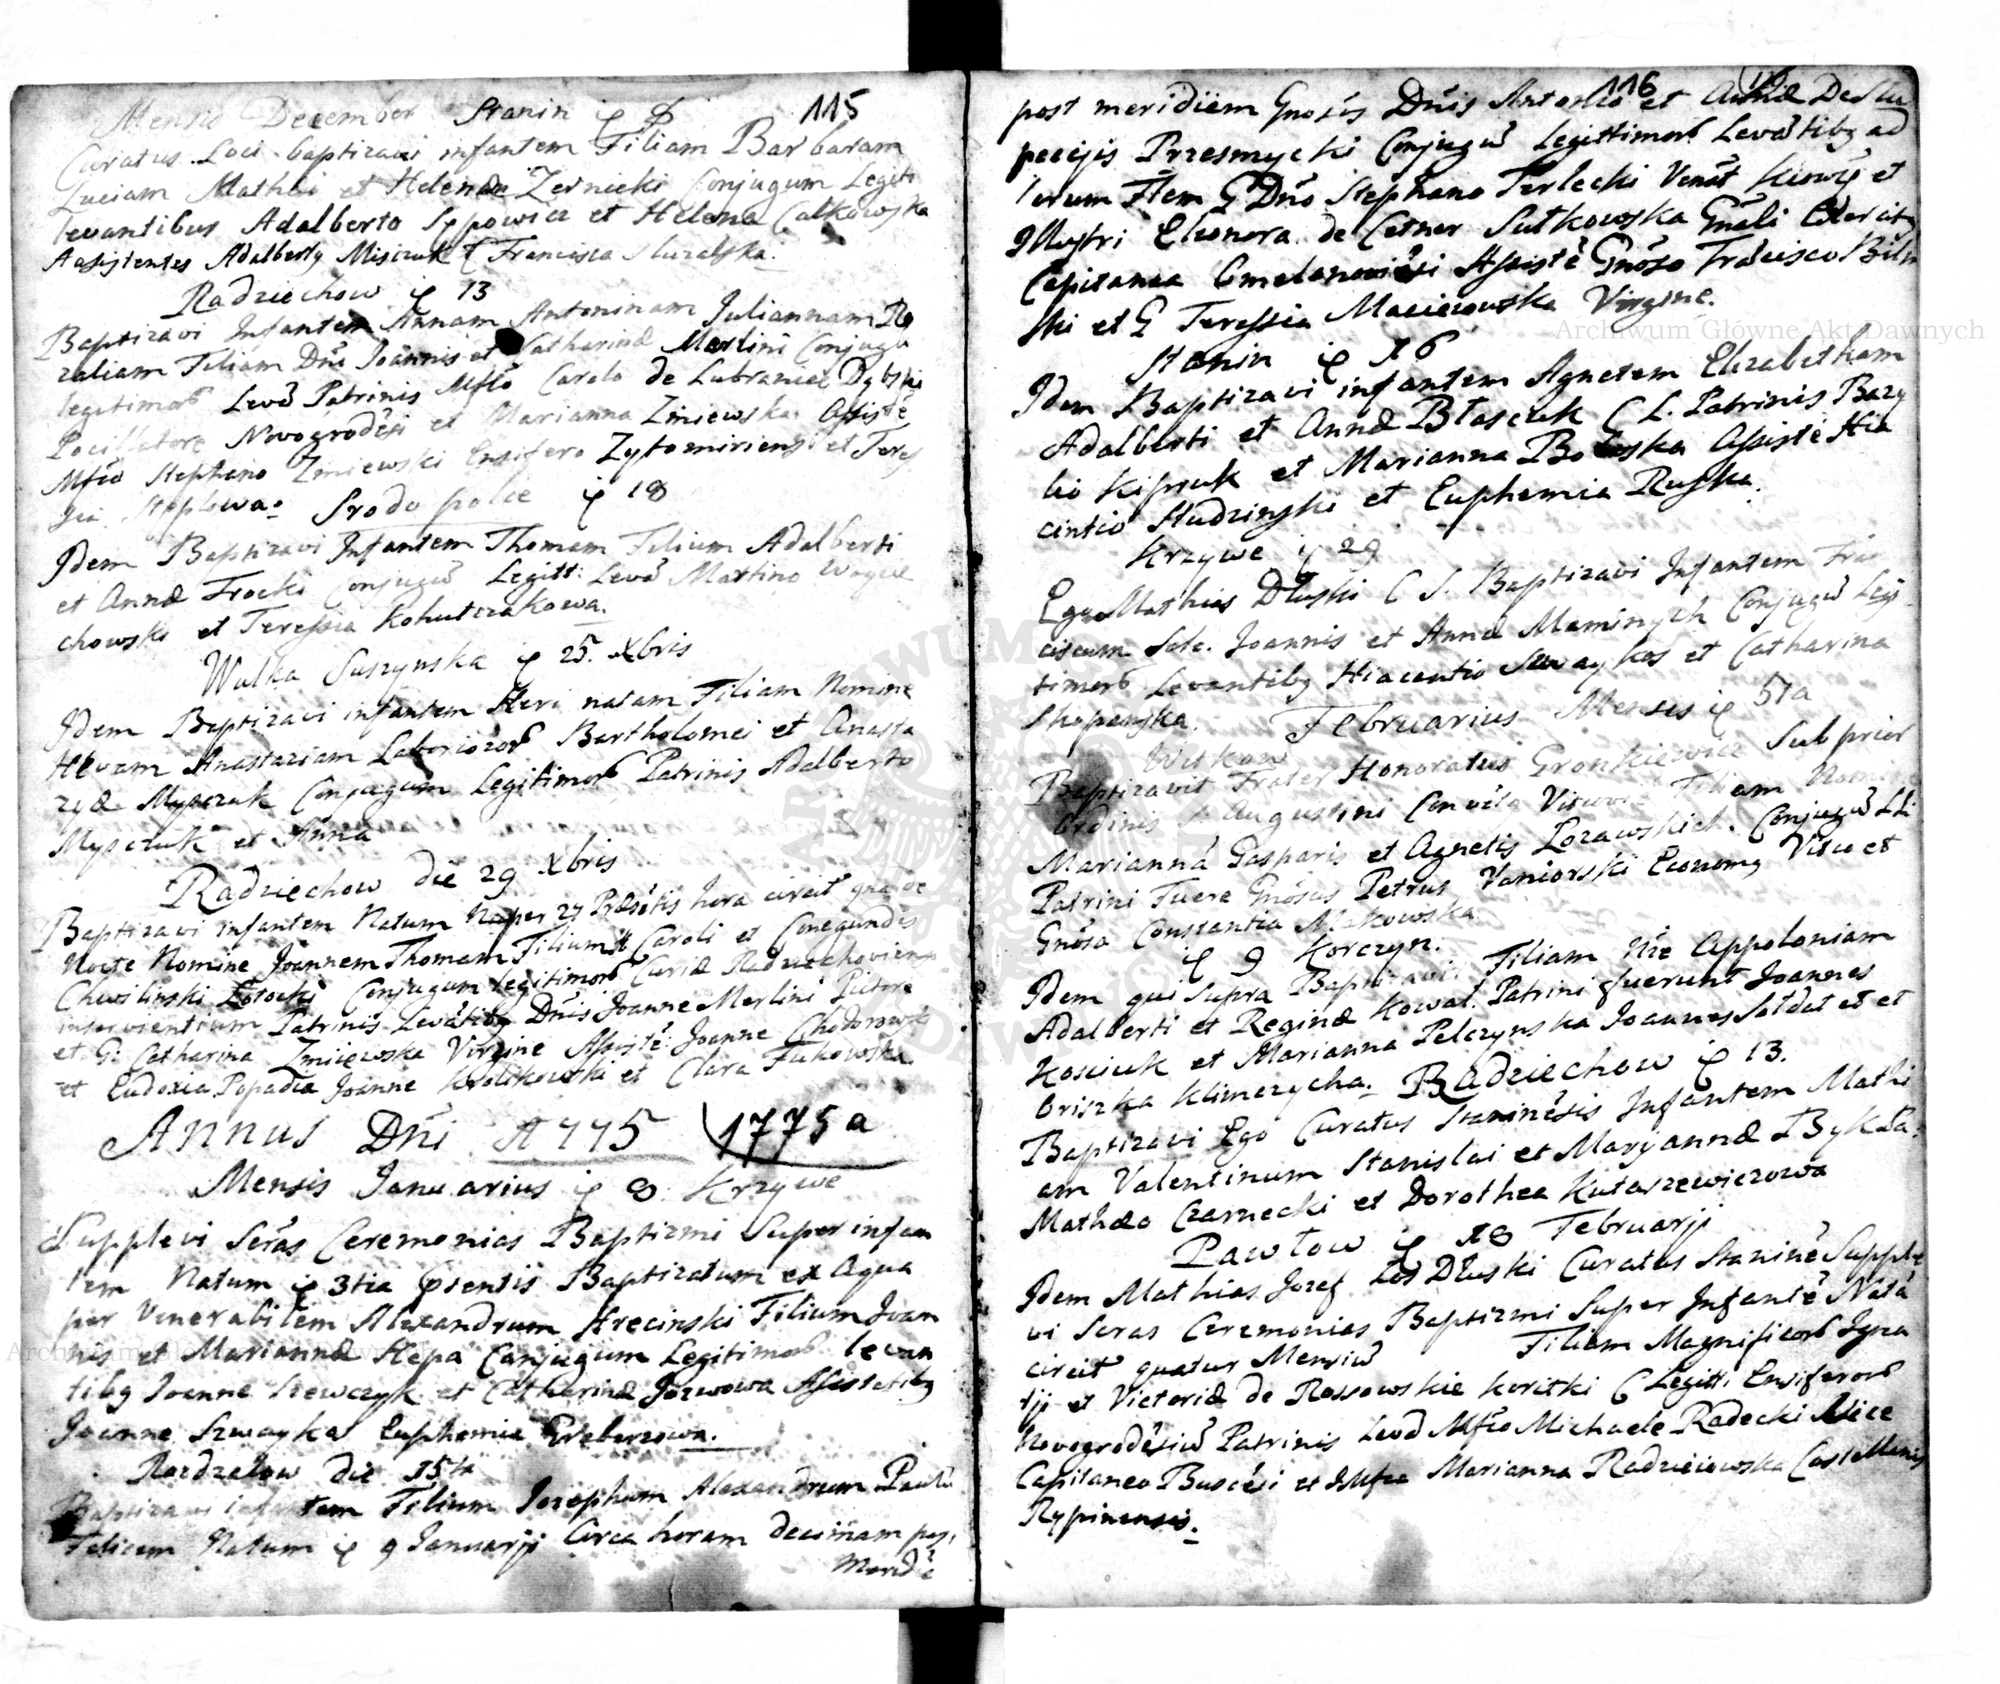 115
Mensis December Stanin
Curatus Loci baptizavi infantem Filiam Barbaram
Luciam Mathei et Helenæ Zernicki Conjugum Legiti
levantibus Adalberto Sypowicz et Helena Całkowska
Assistentes Adalberty Misiczuk et Francisca
Radziechow 13
Baptizavi Infantem Annam Antoninam Juliannam Ro
zaliam Filiam Dni Joannis et Catharinæ Merlini Conjugu
legitimor Levã Patrinis Mffco Carolo de Lubraniec Dąbski
Pocillatore Novogrodesi et Marianna Zmiewska Assistẽ
Mfco Stephano Zmiewski Ensifero Zytomiriensi et Teres
sia
Srodopolce 18
Idem Baptizavi Infantem Thomam Filium Adalberti
et Annæ Trocki Conjugũ Legitt: Levã Martino Woycie
chowski et Teressia Kohutczakowa.
Wulka Suszynska 25. Xbris
Idem Baptizavi infantem Heri natam Filiam Nomine
Hevam Anastaziam Laborioror Bartholomei et Anasta
zyæ Mysczuk Conjugum Legitimor Patrinis Adalberto
Mysczuk et Anna
Radziechow die 29 Xbris
Baptizavi infantem Natum Nuper 27 Præsẽtis hora circit
Nocte Nomine Joannem Thomam Filium Caroli et Conegundis
Chwilinski Conjugum legitimor Curiæ Radziechoviens
inservientium Patrinis Levãtibg Dnis Joanne Merlini Pictore
et G: Catharina Zmiiewska Virgine Assistẽ: Joanne Chodorowski
et Eudoxia Popadia Joanne Krolikowski et Clara Fukowska.
Annus Dni 1775 1775 a
Mensis Januarius 8 Krzywe
Supplevi Seras Ceremonias Baptizmi Super infan
tem Natum 3tia psentis Baptizatum ex Aqua
per Venerabilem Alexandrum Hrecinski Filium Joan
nis et Mariannæ Hepa Conjugum Legitimor levan
tibg Joanne Szewczyk et Catharina Jozwowa Assistetibg
Joanne Szwayka Euphemia
Radzielow die 15ta
Baptizavi infantem Filium Josephum Alexandrum Paulu
Felicem Natum 9 Januarji Circa horam decimam pos
Meridẽ
116
post meridiem Gnosis Dnis Antonio et Annæ De
pecijs Przesmycki Conjugũ Legittimor Levãtibg ad
G Dno Stephano Terlecki Venat Kiowiẽ et
Illustri Eleonora de Cetner Sułkowska Gnãli Exercitg
Capitanea Assistẽ Gnõso Frãcisco Bilin
ski et G Teressia Maciezowska Virgine.
Stanin 16
Idem Baptizavi infantem Agnetem Elizabetham
Adalberti et Annæ Błasczuk C L. Patrinis Bazy
lio Kispruk et Marianna Assistẽ Hia
cintio Studzinski et Euphemia Ruska.
Krzywe 29
Ego Mathias Dłuski C S. Baptizavi Infantem Fran
ciscum Sale. Joannis et Annæ Maminych Conjugũ Legi
timor Levantibg Hiacentio Szwaykos et Catharina
Skopenska.
Februarius Mensis 5ta
Witkow
Baptizavit Frater Honoratus Gronkiewicz Sub prior
Ordinis S. Augustini Conventg Vitcoviẽ Filiam Nomine
Mariannã Gasparis et Agnetis Lozawskich. Conjugũ LLi
Patrini Fuere Gnõsus Petrus Yaniorski Economg Vitco et
Gnõsa Constantia Makowska
9 Korczyn.
Idem qui Supra Baptizavit Filiam Nie Appoloniam
Adalberti et Reginæ Kowal. Patrini fuerunt Joannes
Kosciuk et Marianna Pelczynska Joannes Sołdat et et
Oriszka Klimczycha.
Radziechow 13.
Baptizavi Ego Curatus Staninẽsis Infantem Mathi
am Valentinum Stanislai et Maryannæ Byk Pa
Mathæo Czarnecki et Dorothea Kutaszewiczowa
Pawłow 18 Februarji
Idem Mathias Jozef Łos Dłuski Curatus Staninẽ Supple
vi Seras Ceremonias Baptizmi Super Infantẽ Natã
circit quatur Mensiũ Filiam Magnificor Igna
tji et Victoriæ de Rossowskie Koritki C Legitti Ensiferor
Novogrodẽsiũ Patrinis Levã Mfco Michaele Radecki Vice
Capitaneo Buscẽsi et Mfca Marianna Radzieiewska Castellanis
Rypinensis.
Archiwum Główne Akt Dawnych